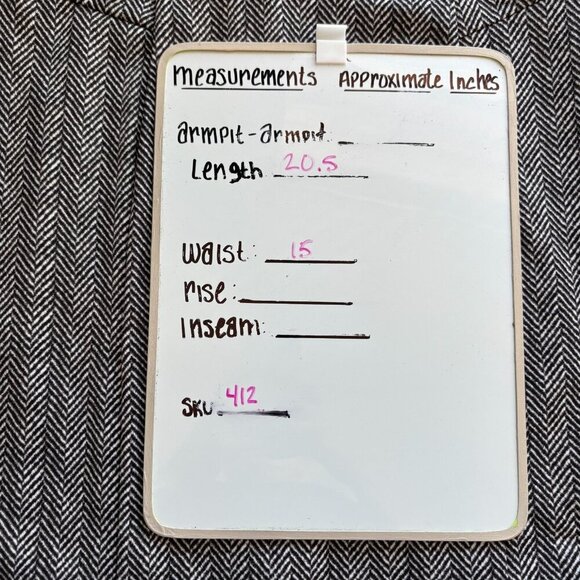 measurements Approximate Inches
armpit-armpit
Length 20.5
waist: 15
rise:
Inseam:
SKU 412